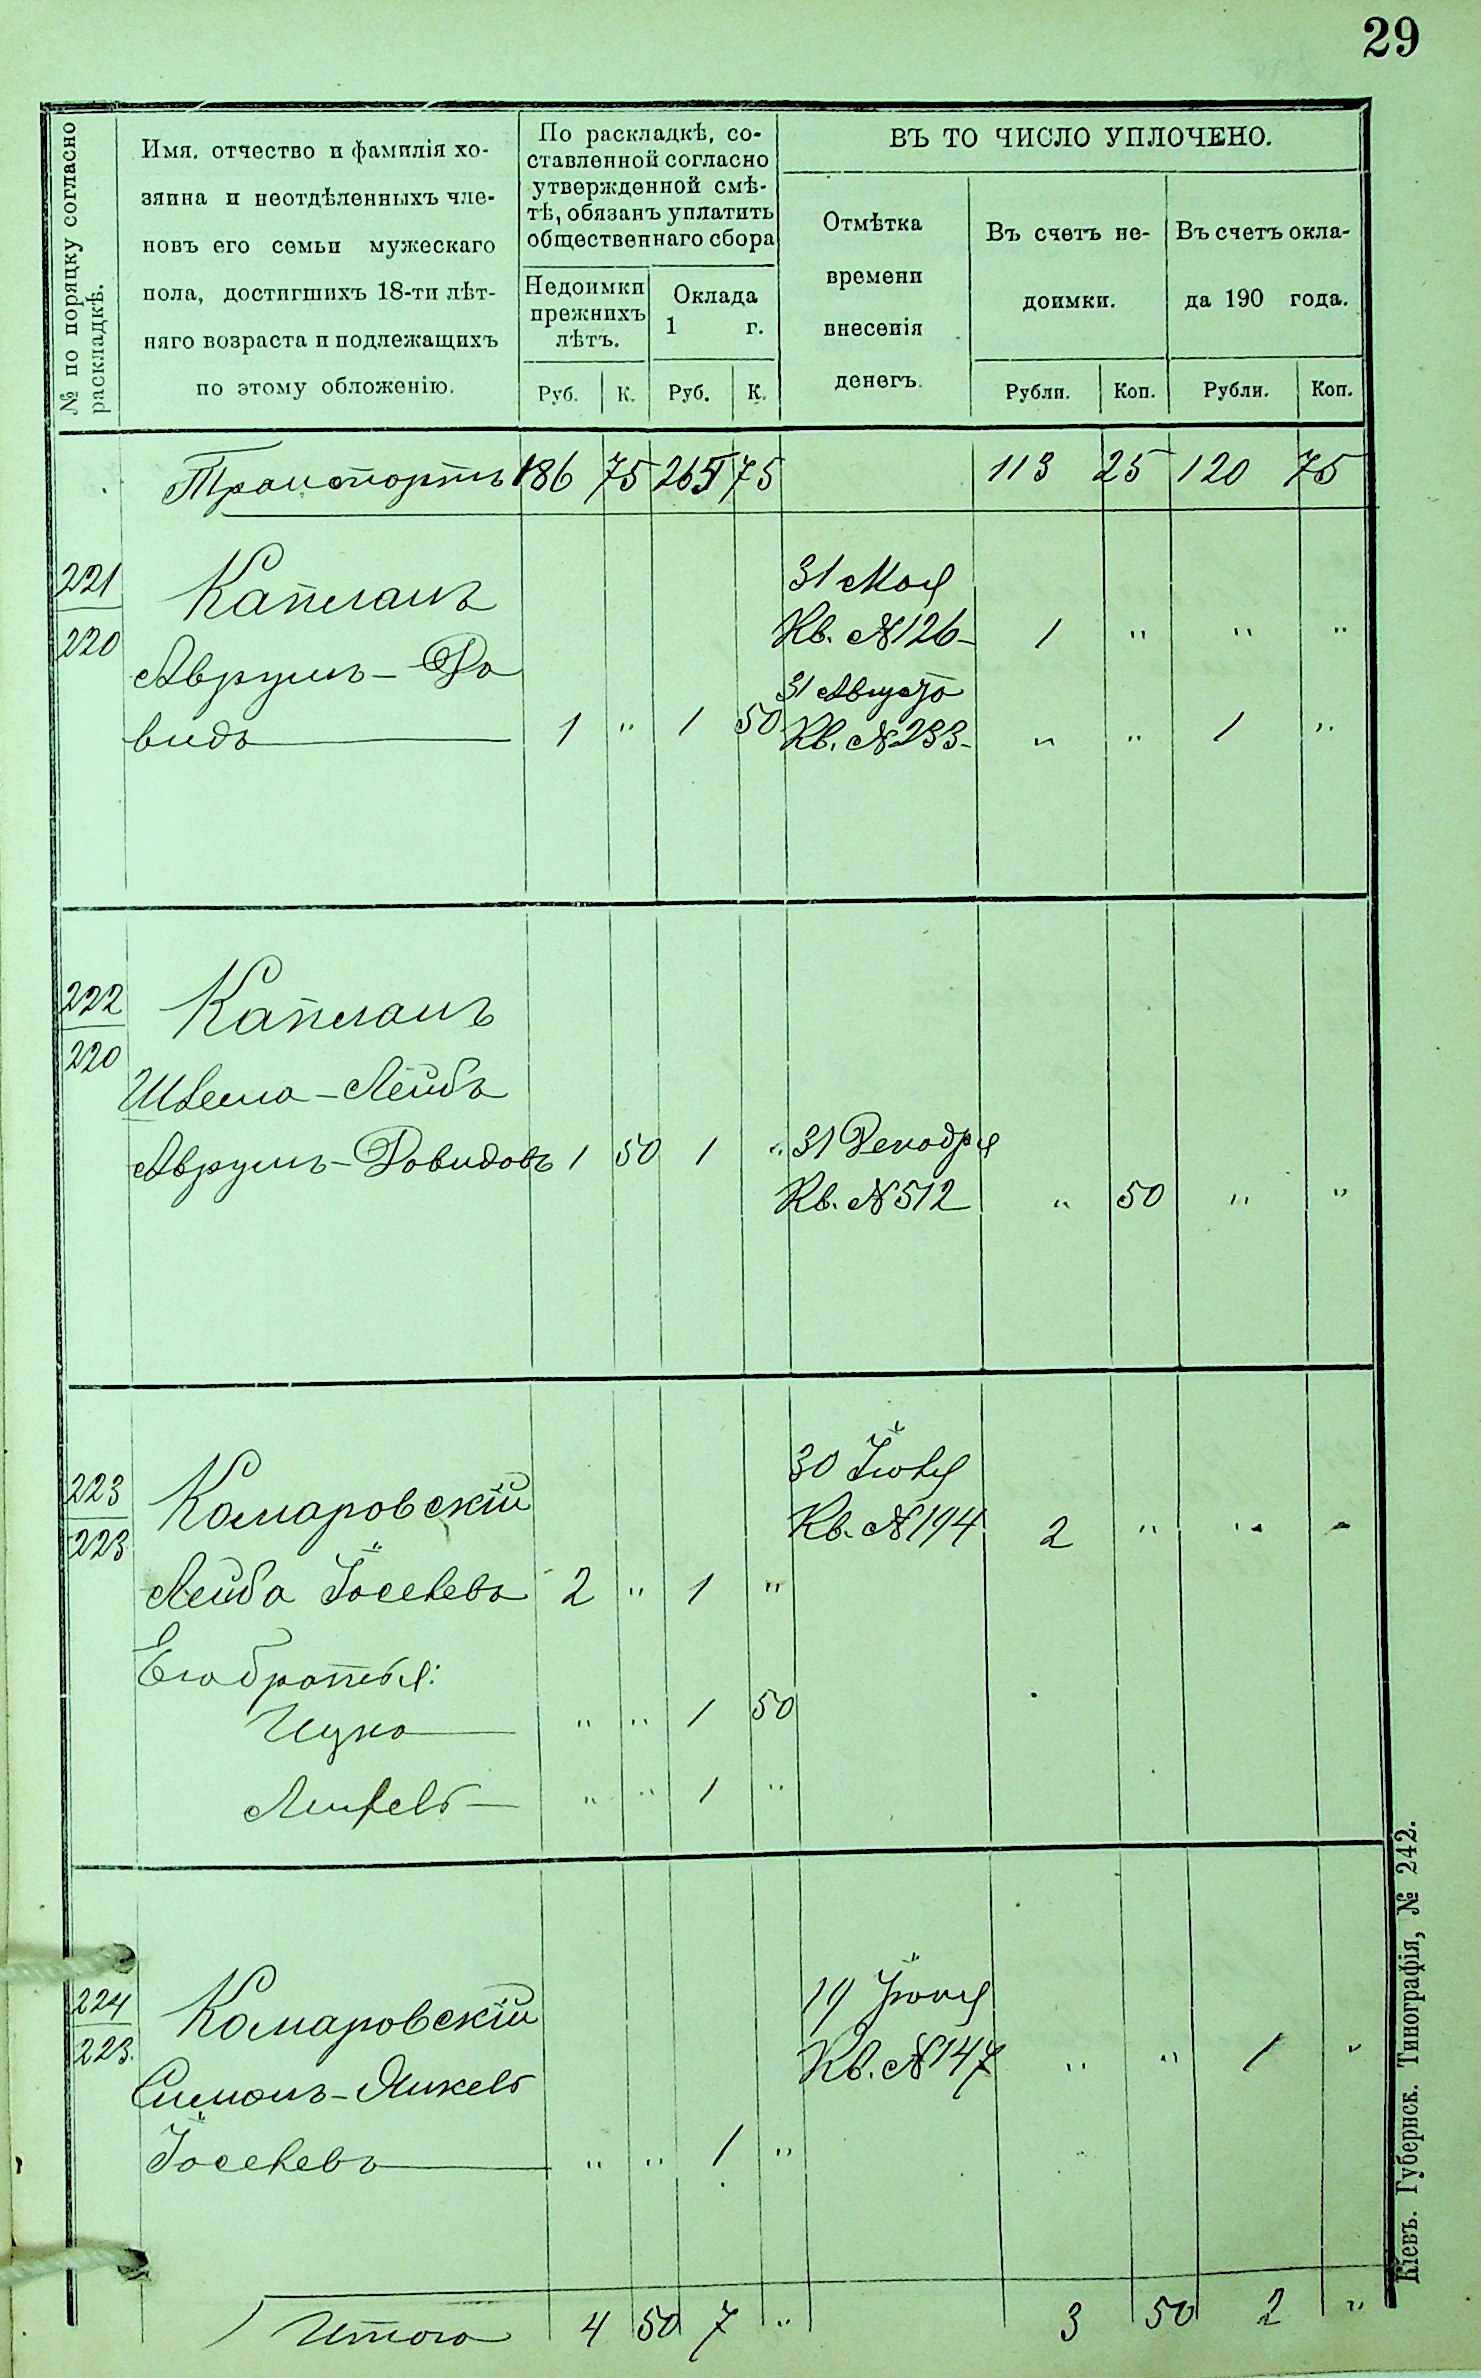 29
№ по порядку согласно раскладкѣ.
Имя, отчество и фамилія хо-
зяина и неотдѣленныхъ чле-
новъ его семьи мужескаго
пола, достигшихъ 18-ти лѣт-
няго возраста и подлежащихъ
по этому обложенію.
По раскладкѣ, со-
ставленной согласно
утвержденной смѣ-
тѣ, обязанъ уплатить
общественнаго сбора
Недоимки
прежнихъ
лѣтъ.
Оклада
1 г.
Руб. К. Руб. К.
ВЪ ТО ЧИСЛО УПЛОЧЕНО.
Отмѣтка
времени
внесенія
денегъ.
Въ счетъ не-
доимки.
Въ счетъ окла-
да 190 года.
Рубли. Коп. Рубли. Коп.
Транспортъ 186 75 265 75 113 25 120 75
221
220
Капланъ
Аврумъ-Да
видъ 1 " 1 50
31 Мая
Кв. № 126 1 " " "
31 Августа
Кв. № 233 " " 1 "
222
220
Капланъ
Шлема-Лейба
Аврумъ-Давидовъ 1 50 1 "
31 Декабря
Кв. № 512 " 50 " "
223
223
Комаровскій
Лейба Іоселевъ 2 " 1 "
30 Іюля
Кв. № 194 2 " " "
Его братья:
Ицко " " 1 50
" " 1 "
224
223
Комаровскій
Симонъ-Янкель
Іоселевъ " " 1 "
19 Іюня
Кв. № 147 " " 1 "
Итого 4 50 7 " 3 50 2 "
Кіевъ. Губернск. Типографія, № 242.